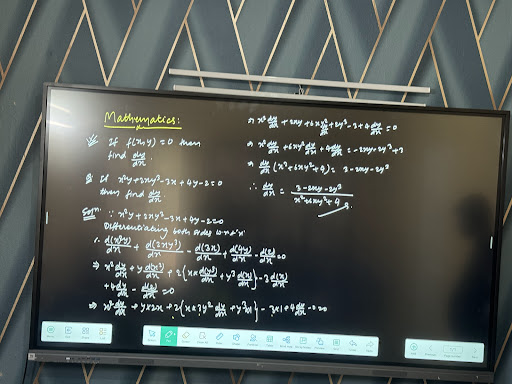 Mathematics:
If f(x,y)=0 then
find dy/dx
If x²y+2xy³-3x+4y-2=0
then find dy/dx.
Soln: ∵ x²y+2xy³-3x+4y-2=0
Differentiating both sides w.r.t 'x'
∴ d(x²y)/dx + d(2xy³)/dx - d(3x)/dx + d(4y)/dx - d(2)/dx=0
⇒ x² dy/dx + y d(x²)/dx + 2{x d(y³)/dx + y³ d(x)/dx} - 3 d(x)/dx
+4 dy/dx - d(2)/dx = 0
⇒ x² dy/dx + y×2x + 2{x×3y² dy/dx + y³×1} - 3×1 + 4 dy/dx - 0=0
⇒ x² dy/dx + 2xy + 6xy² dy/dx + 2y³ - 3 + 4 dy/dx = 0
⇒ x² dy/dx + 6xy² dy/dx + 4 dy/dx = -2xy - 2y³ + 3
⇒ dy/dx (x²+6xy²+4) = 3-2xy-2y³
∴ dy/dx = 3-2xy-2y³ / x²+6xy²+4